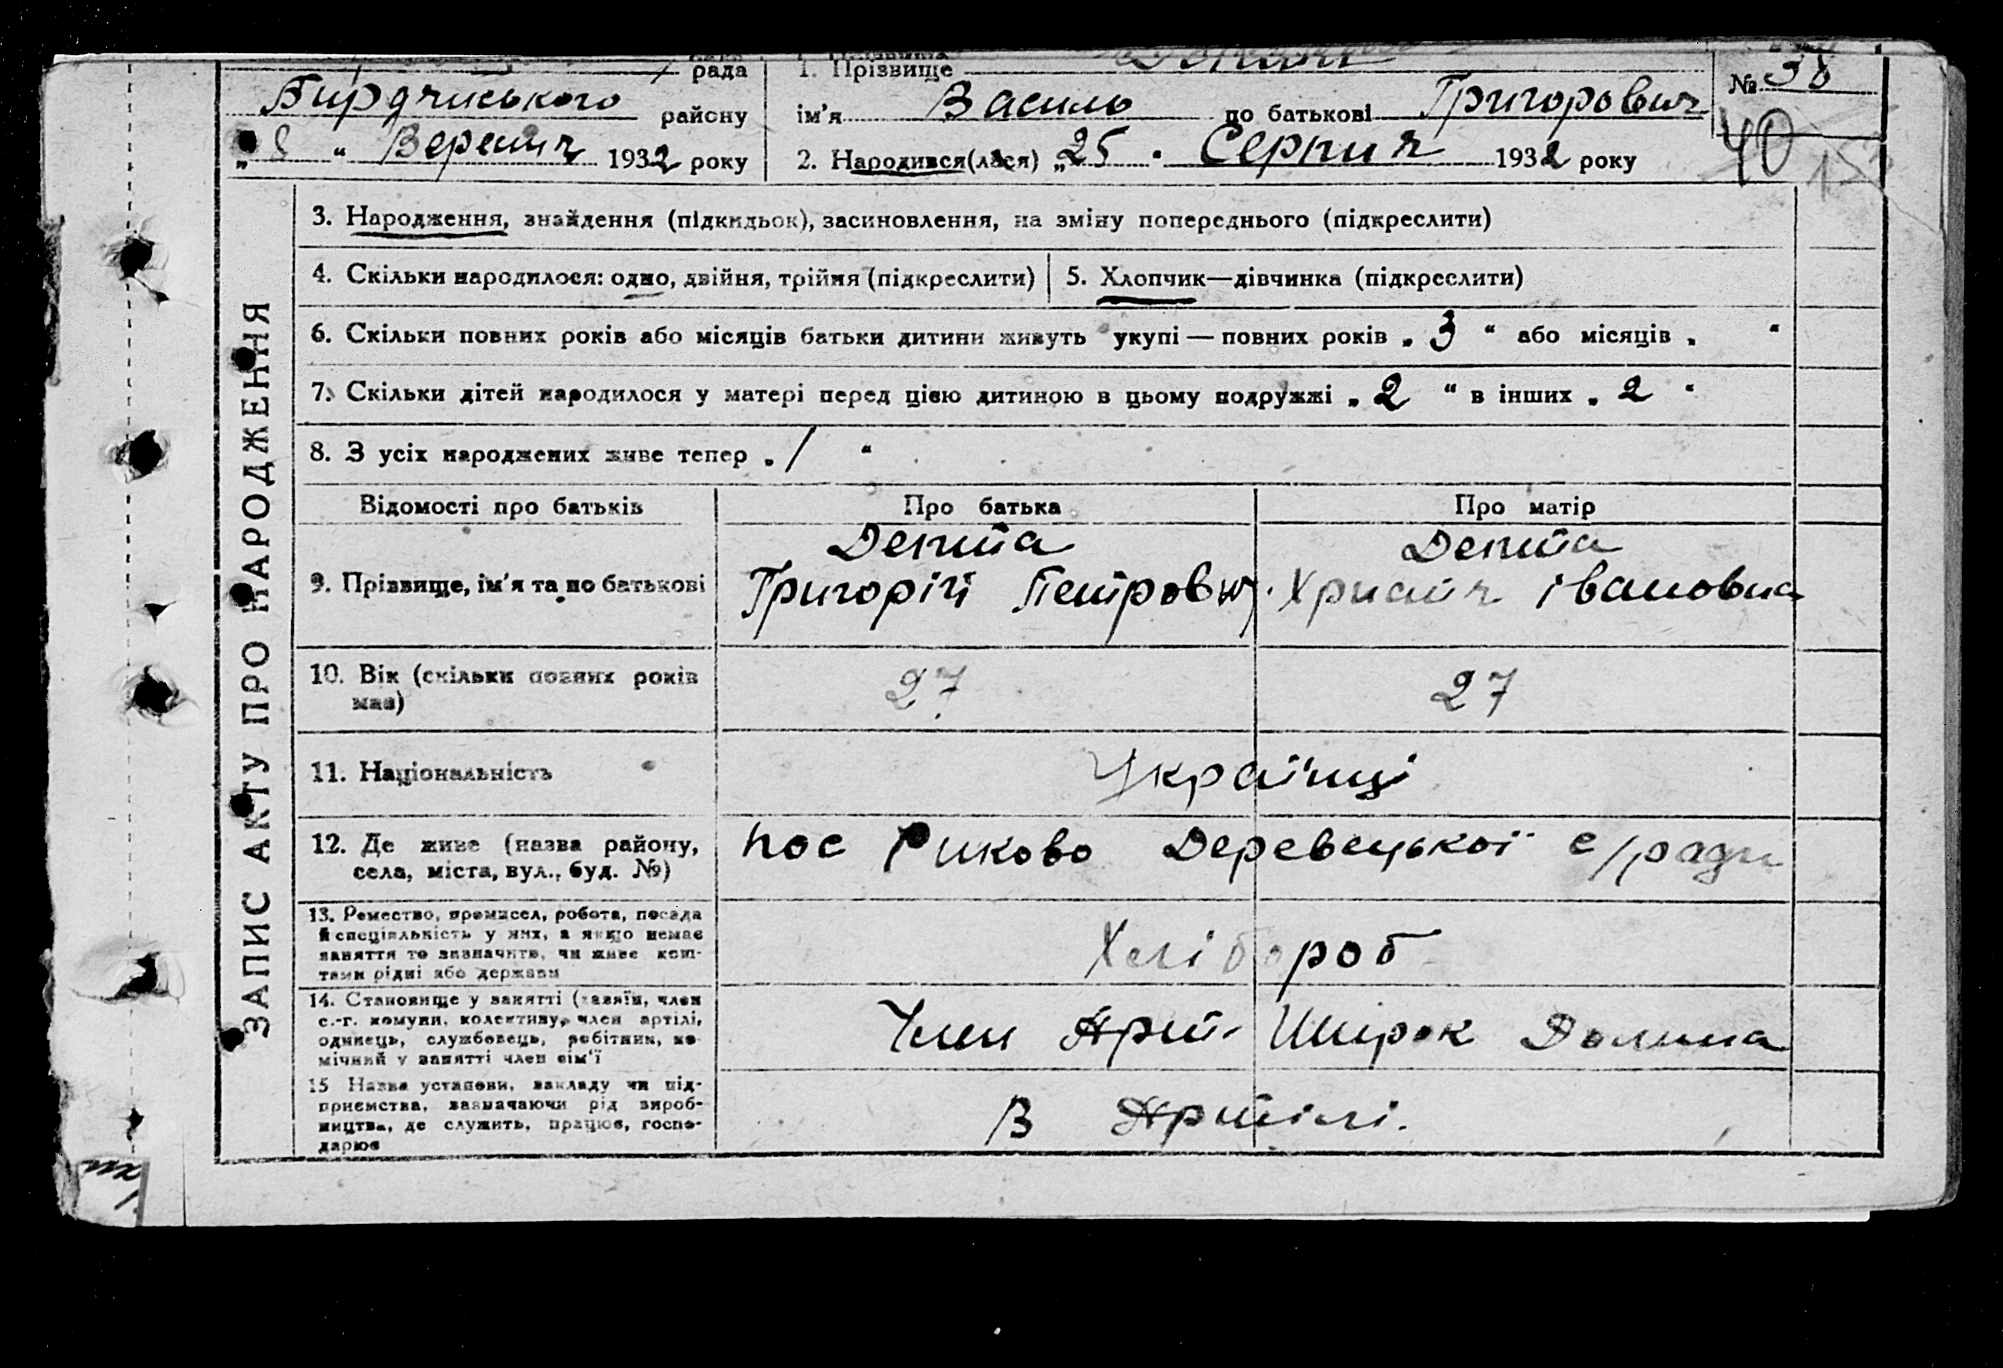 рада
1. Прізвище
№ 38
Бирдчиського району
ім'я Василь по батькові Григорович
40
„ 8 “ Вересня 1932 року
2. Народився(лася) „ 25 “ Серпня 1932 року
ЗАПИС АКТУ ПРО НАРОДЖЕННЯ
3. Народження, знайдення (підкидьок), засиновлення, на зміну попереднього (підкреслити)
4. Скільки народилося: одно, двійня, трійня (підкреслити)
5. Хлопчик—дівчинка (підкреслити)
6. Скільки повних років або місяців батьки дитини живуть укупі — повних років „ 3 “ або місяців „ “
7. Скільки дітей народилося у матері перед цією дитиною в цьому подружжі „ 2 “ в інших „ 2 “
8. З усіх народжених живе тепер „ 1 “
Відомості про батьків
Про батька
Про матір
9. Прізвище, ім'я та по батькові
Депта
Григорій Петрович
Депта
Христя Івановна
10. Вік (скільки повних років має)
27
27
11. Національність
Українці
12. Де живе (назва району,
села, міста, вул., буд. №)
пос Риково Деревецької с/ради
13. Ремество, промисел, робота, посада
й спеціяльність у них, а якщо немає
заняття то визначити, чи живе кош-
тами рідні або держави
Хлібороб
14. Становище у занятті (хазяїн, член
с.-г. комуни, колективу, член артілі,
одинець, службовець, робітник, по-
мічний у занятті член сім'ї
Член Арт. Широк Долина
15 Назва установи, закладу чи під-
приємства, зазначаючи рід вироб-
ництва, де служить, працює, госпо-
дарює
В Артілі.